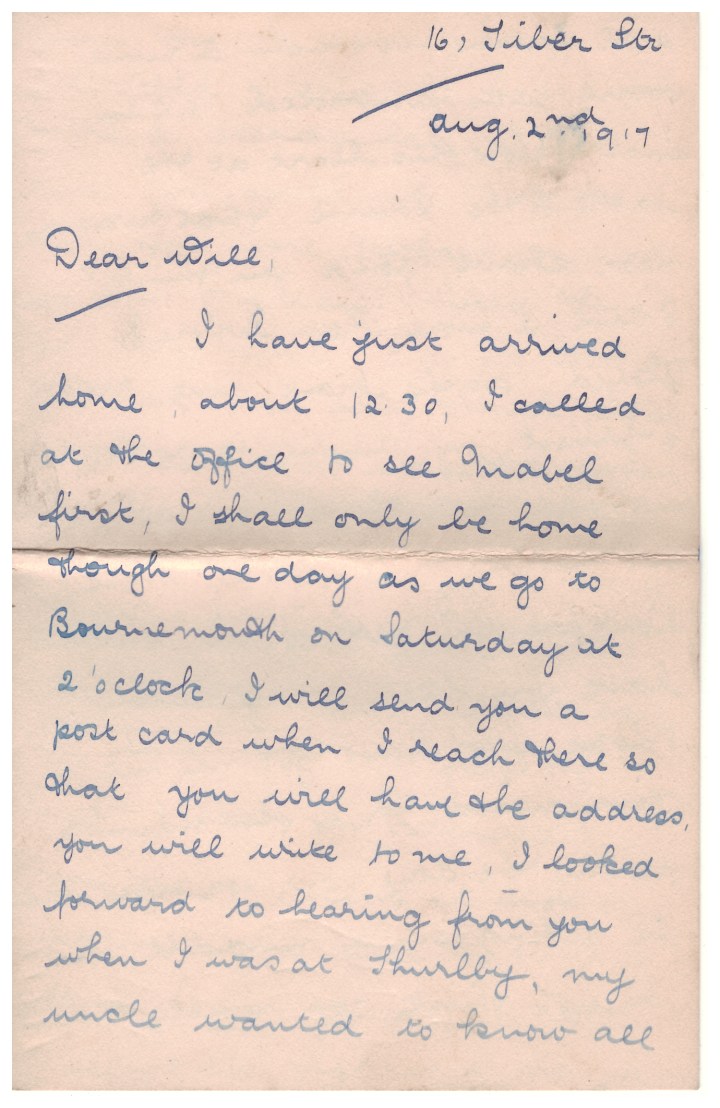 16, Tiber Str
Aug. 2nd, 1917
Dear Will,
I have just arrived
home, about 12.30, I called
at the office to see Mabel
first, I shall only be home
though one day as we go to
Bournemouth on Saturday at
2 'oclock, I will send you a
post card when I reach there so
that you will have the address,
you will write to me, I looked
forward to hearing from you
when I was at Thurlby, my
uncle wanted to know all